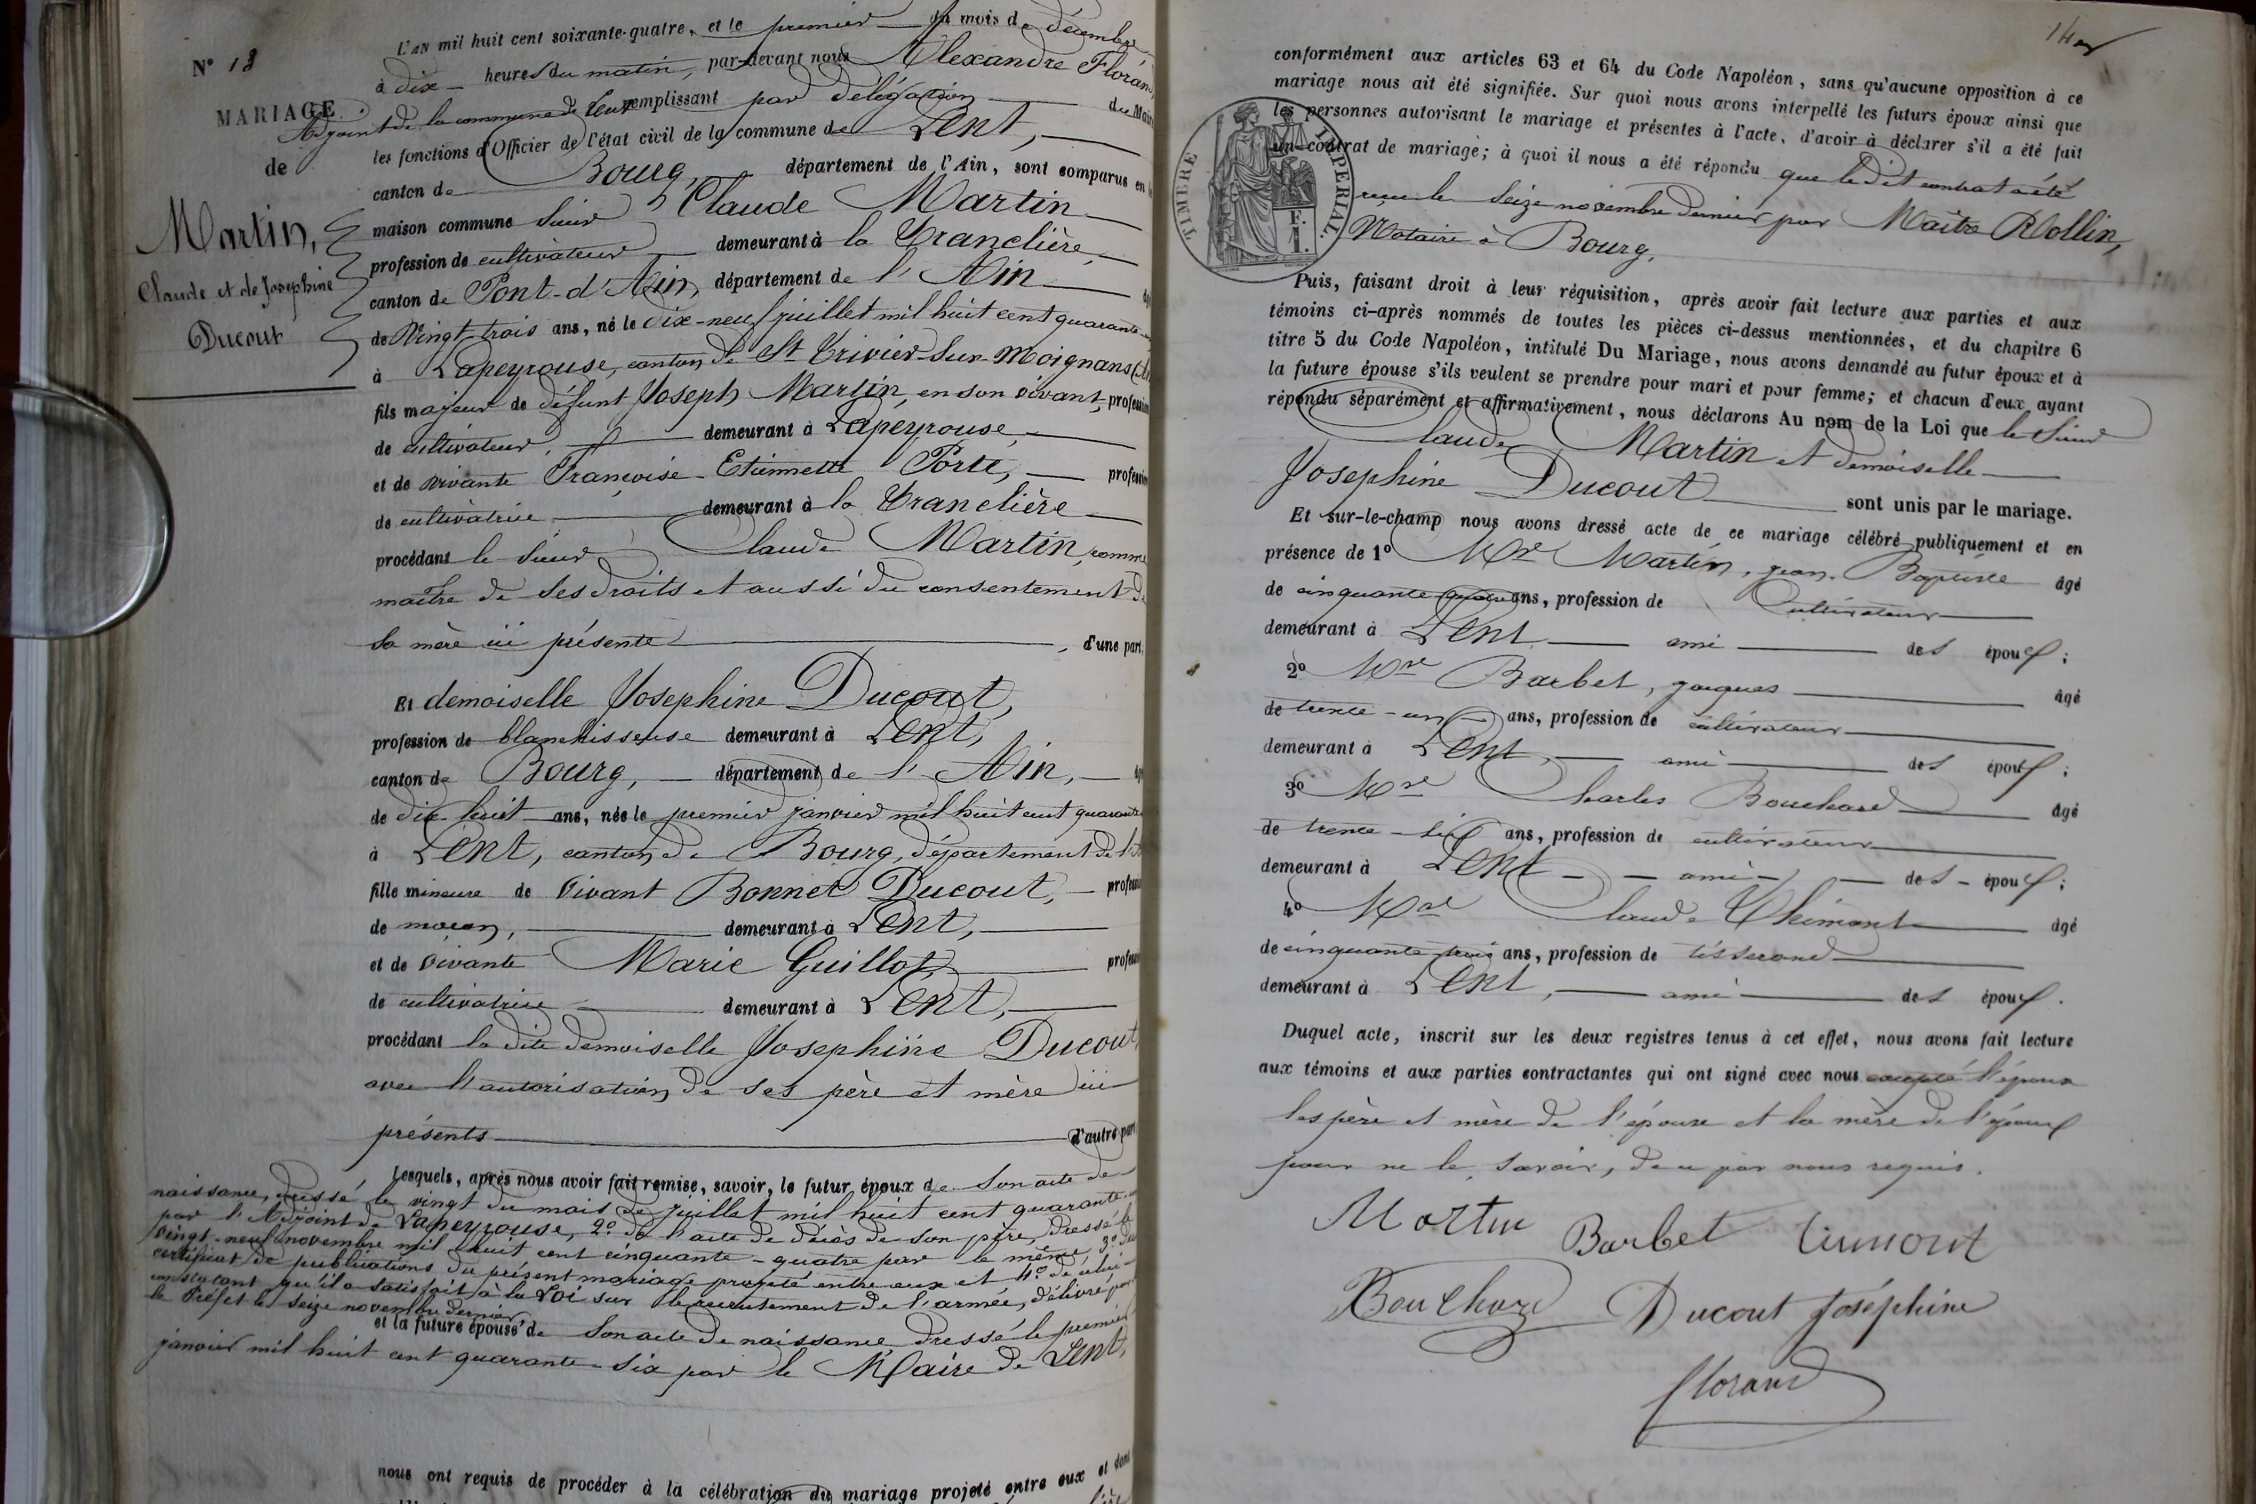 N° 13
MARIAGE
de
Martin,
Claude et de Josephine
Ducout
L'AN mil huit cent soixante-quatre, et le premier du mois de décembre
à dix heures du matin, par-devant nous Alexandre Florand
Adjoint de la commune de Lent remplissant par délégation du Maire
les fonctions d'Officier de l'état civil de la commune de Lent,
canton de Bourg, département de l'Ain, sont comparus en la
maison commune sieur Claude Martin
profession de cultivateur demeurant à la Tranclière,
canton de Pont-d'Ain, département de l'Ain
de Vingt trois ans, né le dix-neuf juillet mil huit cent quarante
à Lapeyrouse, canton de St Trivier-sur-Moignans
fils majeur de défunt Joseph Martin, en son vivant, profession
de cultivateur, demeurant à Lapeyrouse,
et de vivante Françoise-Etiennette Porte, profession
de cultivatrice demeurant à la Tranclière
procédant le sieur Claude Martin, comme
maître de ses droits et aussi du consentement de
sa mère ici présente , d'une part.
Et demoiselle Josephine Ducout,
profession de blanchisseuse demeurant à Lent,
canton de Bourg, département de l'Ain,
de dix huit ans, née le premier janvier mil huit cent quarante
à Lent, canton de Bourg, département de l'
fille mineure de vivant Bonnet Ducout, profession
de maçon, demeurant à Lent,
et de vivante Marie Guillot, profession
de cultivatrice demeurant à Lent,
procédant la dite demoiselle Josephine Ducout,
avec l'autorisation de ses père et mère ici
présents d'autre part
Lesquels, après nous avoir fait remise, savoir, le futur époux de son acte de
naissance, dressé le vingt du mois de juillet mil huit cent quarante
par l'Adjoint de Lapeyrouse, 2° de l'acte de décès de son père, dressé le
vingt-neuf novembre mil huit cent cinquante-quatre par le même, 3° du
certificat de publications du présent mariage projeté entre eux et 4° de celui
constatant qu'il a satisfait à la Loi sur le recrutement de l'armée, délivré par
le Préfet le seize novembre dernier
et la future épouse de son acte de naissance dressé le premier
janvier mil huit cent quarante-six par le Maire de Lent,
nous ont requis de procéder à la célébration du mariage projeté entre eux et dont
conformément aux articles 63 et 64 du Code Napoléon, sans qu'aucune opposition à ce
mariage nous ait été signifiée. Sur quoi nous avons interpellé les futurs époux ainsi que
les personnes autorisant le mariage et présentes à l'acte, d'avoir à déclarer s'il a été fait
un contrat de mariage; à quoi il nous a été répondu que le dit contrat a été
reçu le seize novembre dernier par Maître Rollin,
Notaire à Bourg.
TIMBRE IMPÉRIAL
F. A.
Puis, faisant droit à leur réquisition, après avoir fait lecture aux parties et aux
témoins ci-après nommés de toutes les pièces ci-dessus mentionnées, et du chapitre 6
titre 5 du Code Napoléon, intitulé Du Mariage, nous avons demandé au futur époux et à
la future épouse s'ils veulent se prendre pour mari et pour femme; et chacun d'eux ayant
répondu séparément et affirmativement, nous déclarons Au nom de la Loi que le sieur
Claude Martin et demoiselle
Josephine Ducout sont unis par le mariage.
Et sur-le-champ nous avons dressé acte de ce mariage célébré publiquement et en
présence de 1° Mr Martin, jean-Baptiste âgé
de cinquante quatre ans, profession de Cultivateur
demeurant à Lent ami des époux;
2° Mre Barbet, jacques âgé
de trente-un ans, profession de cultivateur
demeurant à Lent, ami des époux;
3° Mre Charles Bouchard âgé
de trente-six ans, profession de cultivateur
demeurant à Lent ami des époux;
4° Mre Claude Thimont âgé
de cinquante trois ans, profession de tisserand
demeurant à Lent, ami des époux.
Duquel acte, inscrit sur les deux registres tenus à cet effet, nous avons fait lecture
aux témoins et aux parties contractantes qui ont signé avec nous excepté l'époux
les père et mère de l'épouse et la mère de l'époux
pour ne le savoir, de ce par nous requis.
Martin Barbet timont
Bouchard Ducout Joséphine
Florand